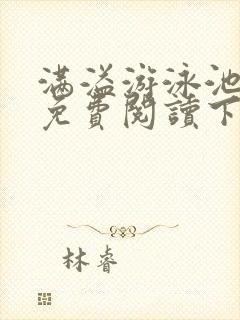 满溢游泳池
免費閱讀下
林睿